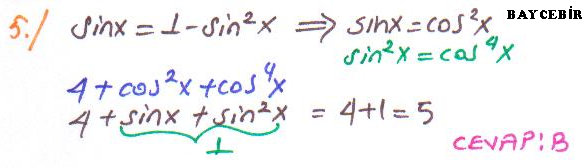 5./ sinx = 1 - sin²x ⟹ sinx = cos²x BAYCEBİR
sin²x = cos⁴x
4 + cos²x + cos⁴x
4 + sinx + sin²x = 4+1 = 5
1
CEVAP: B